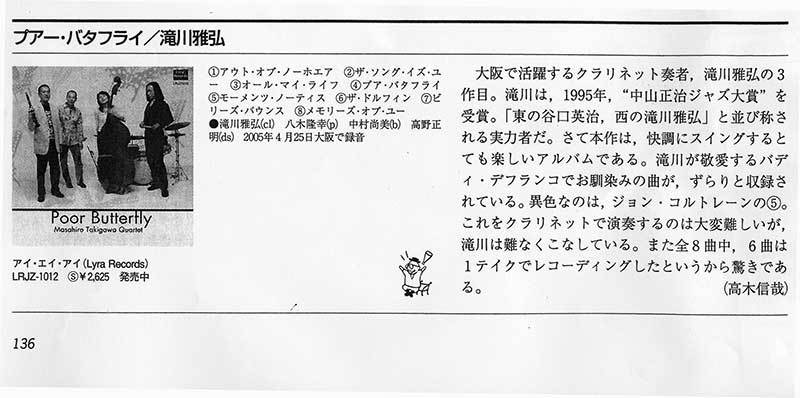 プアー・バタフライ／滝川雅弘
Poor Butterfly
Masahiro Takigawa Quartet
アイ・エイ・アイ(Lyra Records)
LRJZ-1012 Ⓢ¥2,625 発売中
①アウト・オブ・ノーホエア ②ザ・ソング・イズ・ユ
ー ③オール・マイ・ライフ ④プア・バタフライ
⑤モーメンツ・ノーティス ⑥ザ・ドルフィン ⑦ビ
リーズ・バウンス ⑧メモリーズ・オブ・ユー
●滝川雅弘(cl) 八木隆幸(p) 中村尚美(b) 高野正
明(ds) 2005年4月25日大阪で録音
大阪で活躍するクラリネット奏者，滝川雅弘の3
作目。滝川は，1995年，“中山正治ジャズ大賞”を
受賞。「東の谷口英治，西の滝川雅弘」と並び称さ
れる実力者だ。さて本作は，快調にスイングするとっ
ても楽しいアルバムである。滝川が敬愛するバデ
ィ・デフランコでお馴染みの曲が，ずらりと収録さ
れている。異色なのは，ジョン・コルトレーンの⑤。
これをクラリネットで演奏するのは大変難しいが，
滝川は難なくこなしている。また全8曲中，6曲は
1テイクでレコーディングしたというから驚きであ
る。 (高木信哉)
136